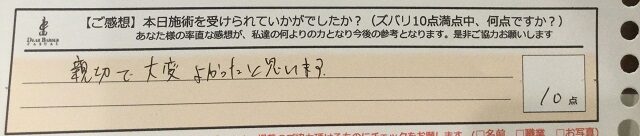 【ご感想】本日施術を受けられていかがでしたか？（ズバリ10点満点中、何点ですか？）
あなた様の率直な感想が、私達の何よりの力となり今後の参考となります。是非ご協力お願いします
DEAR BARBER
CASUAL
親切で大変よかったと思います
10点
ますのでチェックをお願いします（□名前 □職業 □お写真）